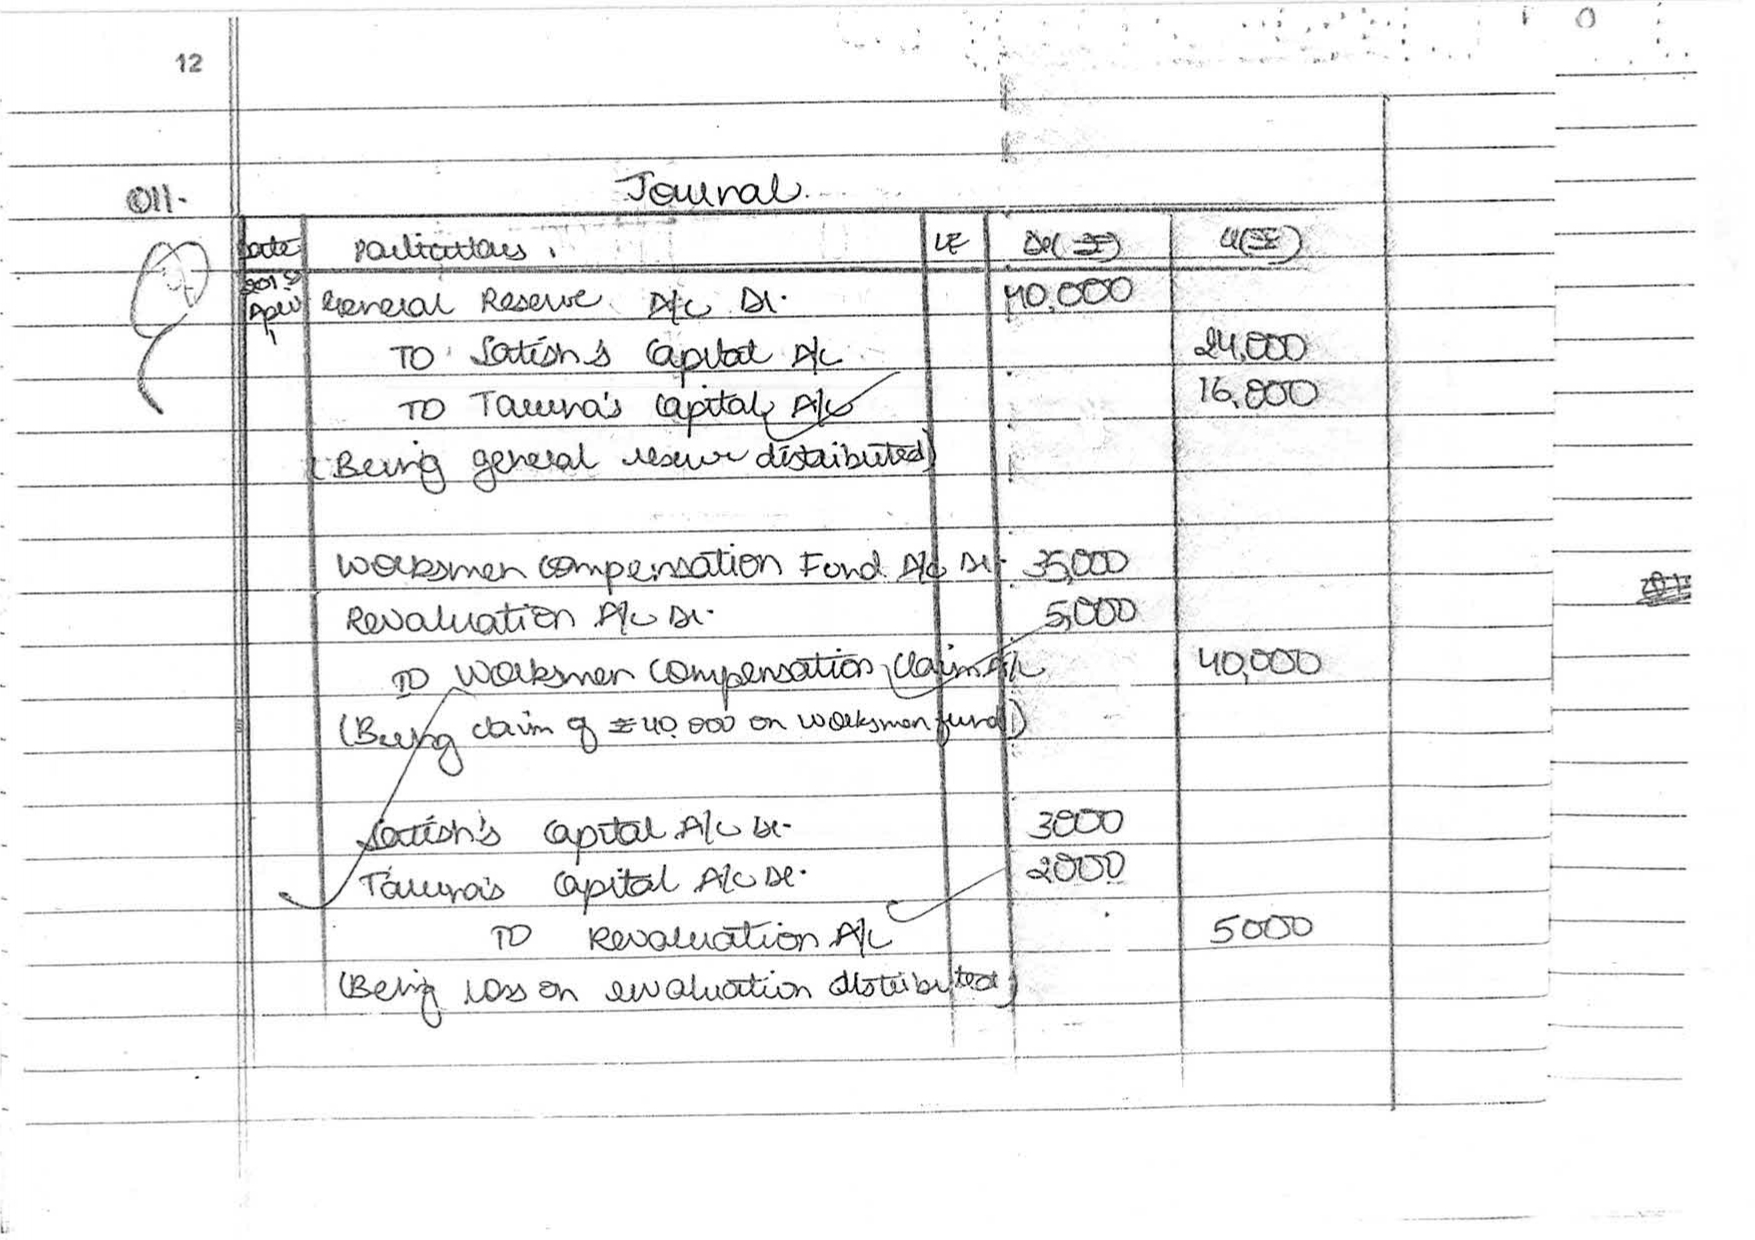 12
Journal.
Q11.
Date Particulars. LF Dr(₹) Cr(₹)
April General Reserve A/c Dr. 40,000
1 To Satish's Capital A/c 24,000
To Taurna's Capital A/c 16,000
(Being general reserve distributed)
Worksmen Compensation Fund A/c Dr. 35,000
Revaluation A/c Dr. 5,000
To Worksmen Compensation Claim A/c 40,000
(Being claim of ₹40,000 on worksmen fund)
Satish's Capital A/c Dr. 3000
Taurna's Capital A/c Dr. 2000
To Revaluation A/c 5000
(Being loss on evaluation distributed)